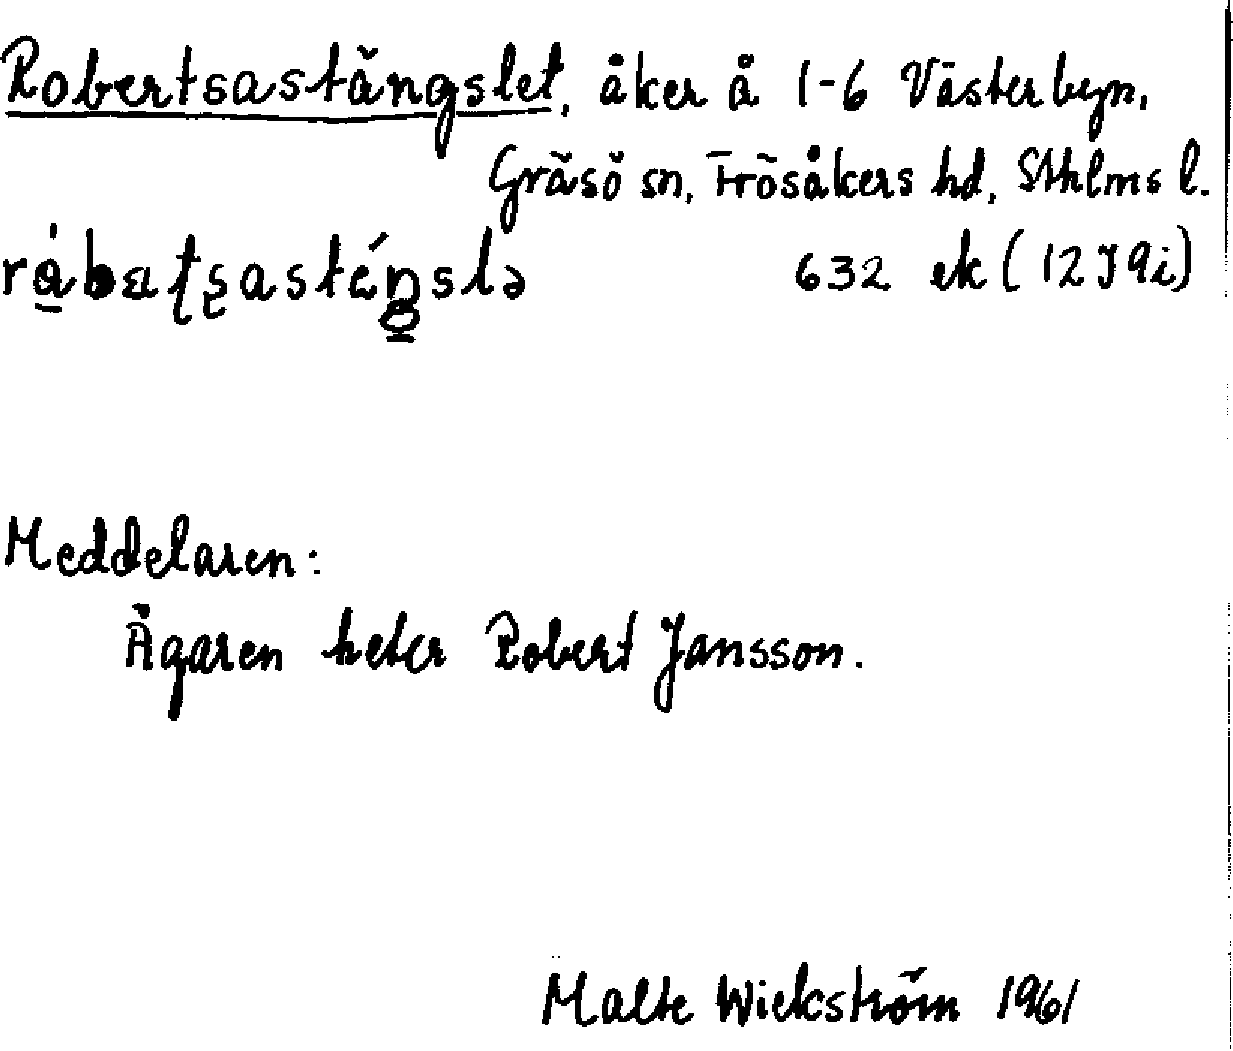 Robertsastängslet, åker å 1-6 Västerbyn,
Gräsö sn, Frösåkers hd, Sthlms l.
632 ek (12J9i)
Meddelaren:
Ägaren heter Robert Jansson.
Malte Wickström 1961